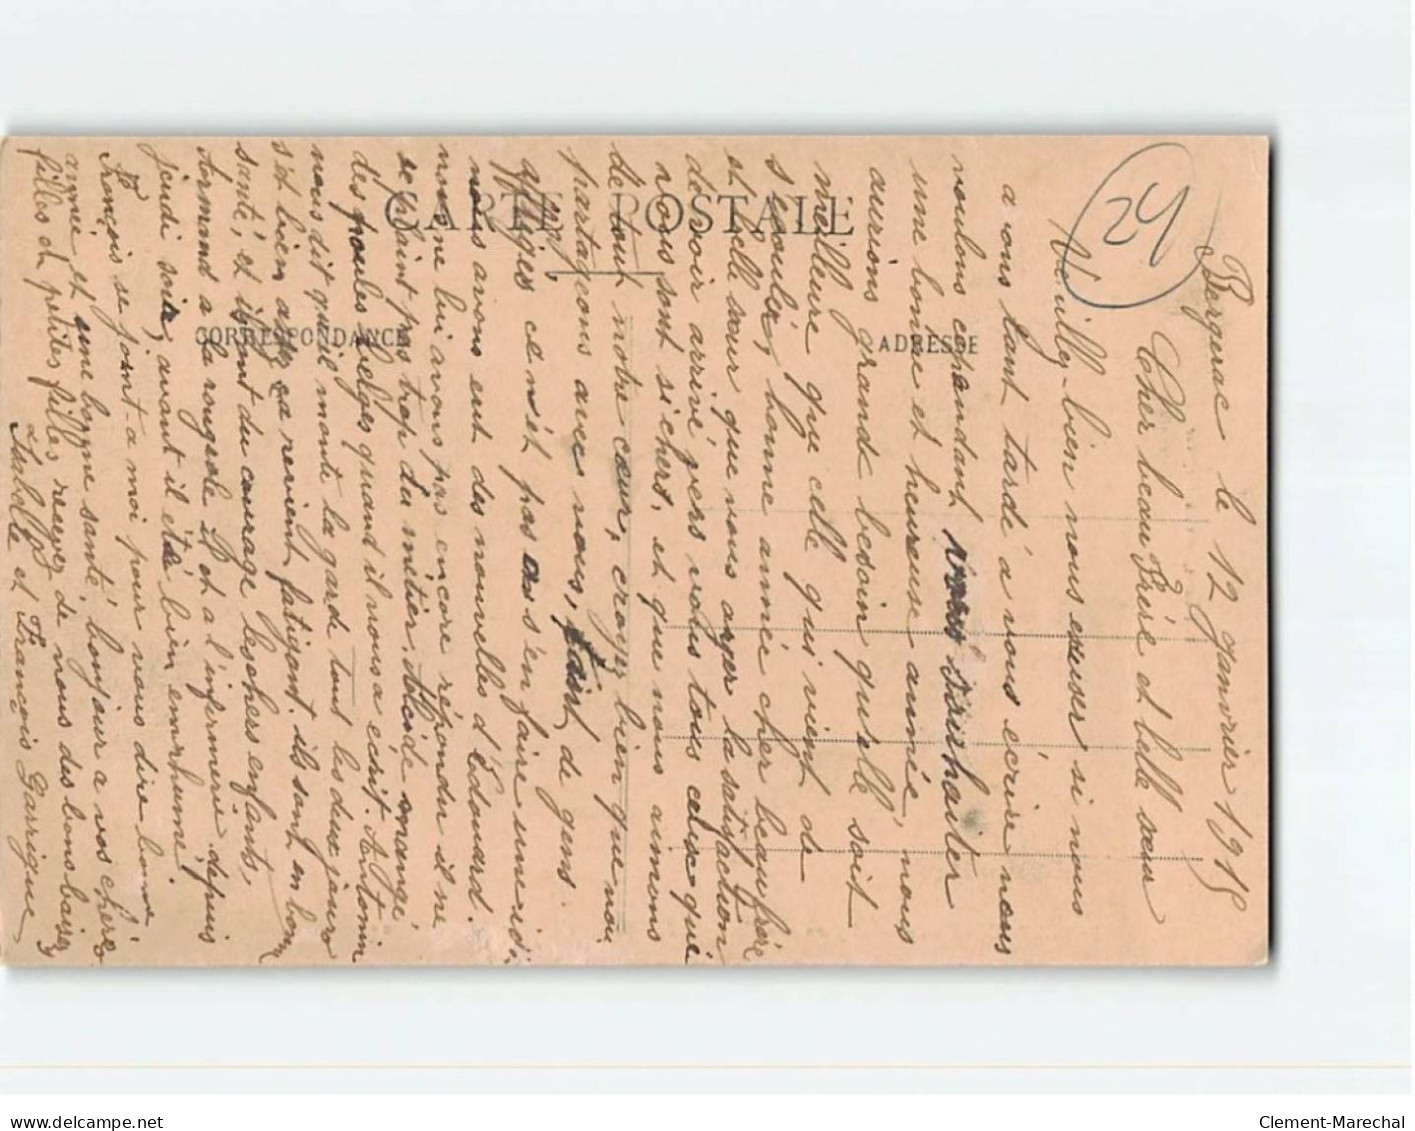 CARTE POSTALE
CORRESPONDANCE
ADRESSE
24
Bergerac le 12 Janvier 1915
Cher beau Frère et belle sœur
Veuillez-bien nous excuser si nous
avons tant tardé a vous écrire nous
voulons cependant vous souhaiter
une bonne et heureuse année, nous
aurions grand besoin qu'elle soit
meilleure que celle qui vient de
s'écouler, bonne année cher beau frère
et belle sœur que nous ayer la satisfaction
devoir arrivé vers vous tous ceux qui
vous sont si chers, et que nous aimons
de tout notre cœur, croyez bien que nous
partageons avec nous, tant de gens
affligés ce n'èt pas as s'en faire une idé
nous avons eut des nouvelles d'Edouard.
nous ne lui avons pas encore répondu il ne
se plaint pas trop du métier. Alcide mangé
des poules belges quand il nous a écrit. Antonin
nous dit qu'il monte la garde tout les deux jours
s'èt bien assez ca revient fatigant. ils sont en bonne
santé, et ils ont du courage les chers enfants,
Armand a la rougeole et èt a l'infirmerie depuis
jeudi soir, avant il été bien enrhumé.
François se joint a moi pour vous dire bonne
année et une bonne santé, bonjour a vos chère
filles et petites filles, recevez de nous des bons baisers
Isabelle et François Garrigue
Clement-Marechal
www.delcampe.net